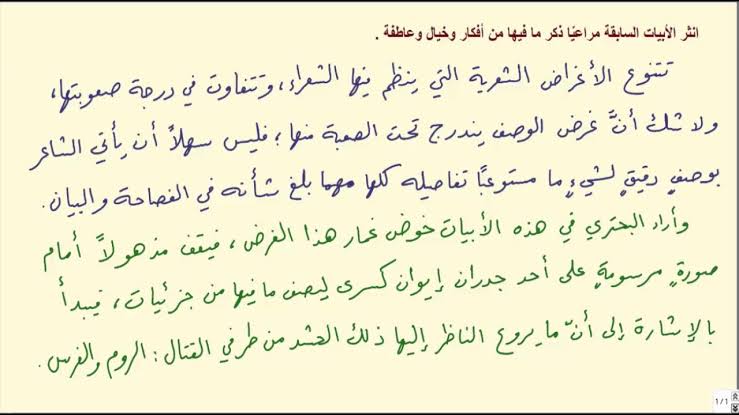 انثر الأبيات السابقة مراعيًا ذكر ما فيها من أفكار وخيال وعاطفة .
تتنوع الأغراض الشعرية التي ينظم فيها الشعراء، وتتفاوت في درجة صعوبتها،
ولا شك أنَّ غرض الوصف يندرج تحت الصعبة منها؛ فليس سهلاً أن يأتي الشاعر
بوصفٍ دقيقٍ لشيءٍ ما مستوعبًا تفاصيله كلها مهما بلغ شأنه في الفصاحة والبيان.
وأراد البحتري في هذه الأبيات خوض غمار هذا الغرض، فيقف مذهولاً أمام
صورةٍ مرسومةٍ على أحد جدران إيوان كسرى ليصف ما فيها من جزئيات، فيبدأ
بالإشارة إلى أنّ ما يروع الناظر إليها ذلك الحشد من طرفي القتال: الروم والفرس.
1/1